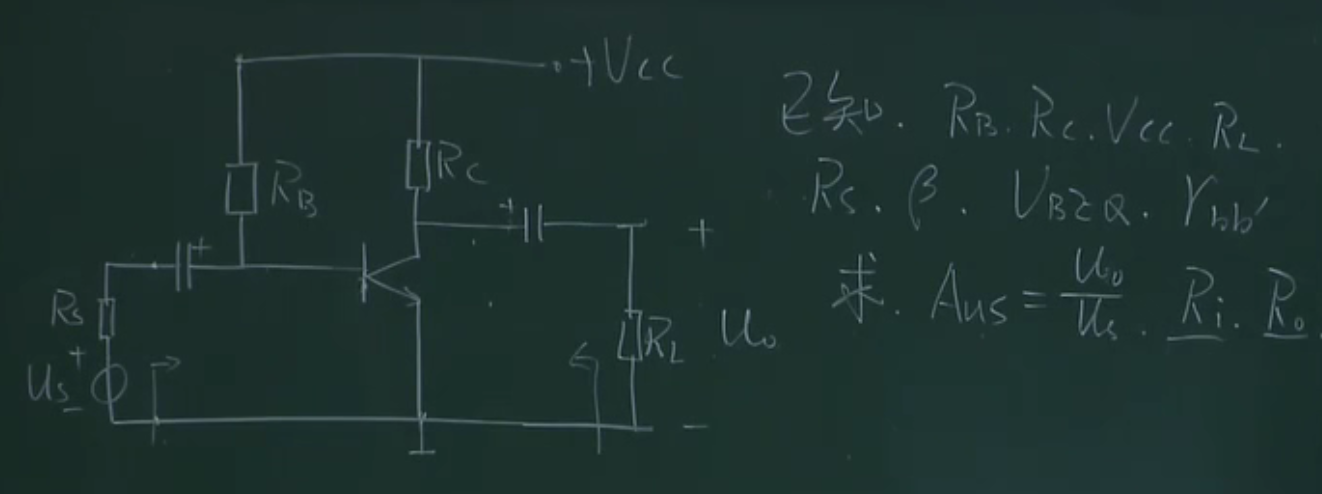 +Vcc
RB
Rc
Rs
+
Us
-
+
+
RL
Uo
-
已知. RB. Rc. Vcc. RL.
Rs. β. UBEQ. rbb'
求. Aus = Uo/Us. Ri. Ro